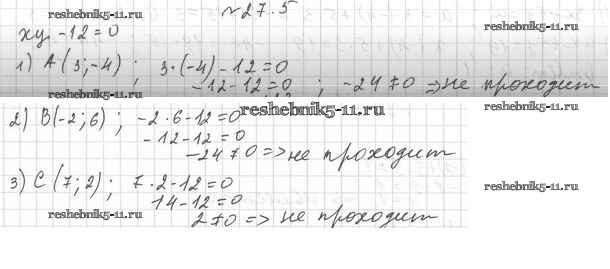 №27.5
reshebnik5-11.ru
reshebnik5-11.ru
xy - 12 = 0
1) A(3;-4) ; 3·(-4) - 12 = 0
-12-12=0 ; -24≠0 => не проходит
reshebnik5-11.ru
reshebnik5-11.ru
2) B(-2;6) ; -2·6-12=0
reshebnik5-11.ru
-12-12=0
-24≠0 => не проходит
3) C(7;2) ; 7·2-12=0
reshebnik5-11.ru
14-12=0
reshebnik5-11.ru
2≠0 => не проходит